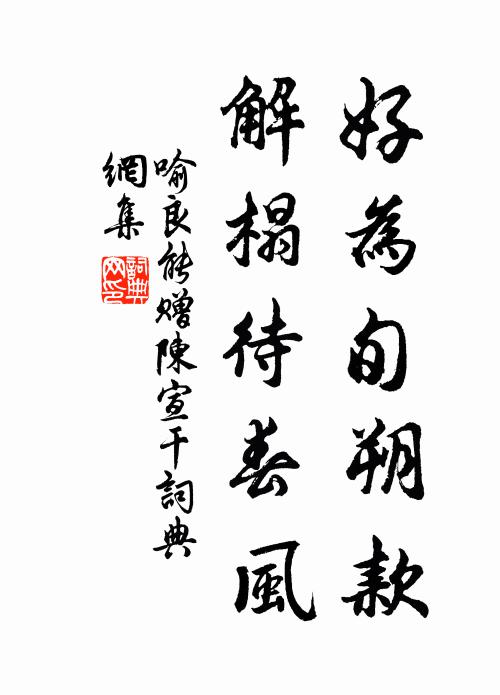 好為旬朔款
解榻待春風
喻良能贈陳宣干詞典
網集
詞典
网印